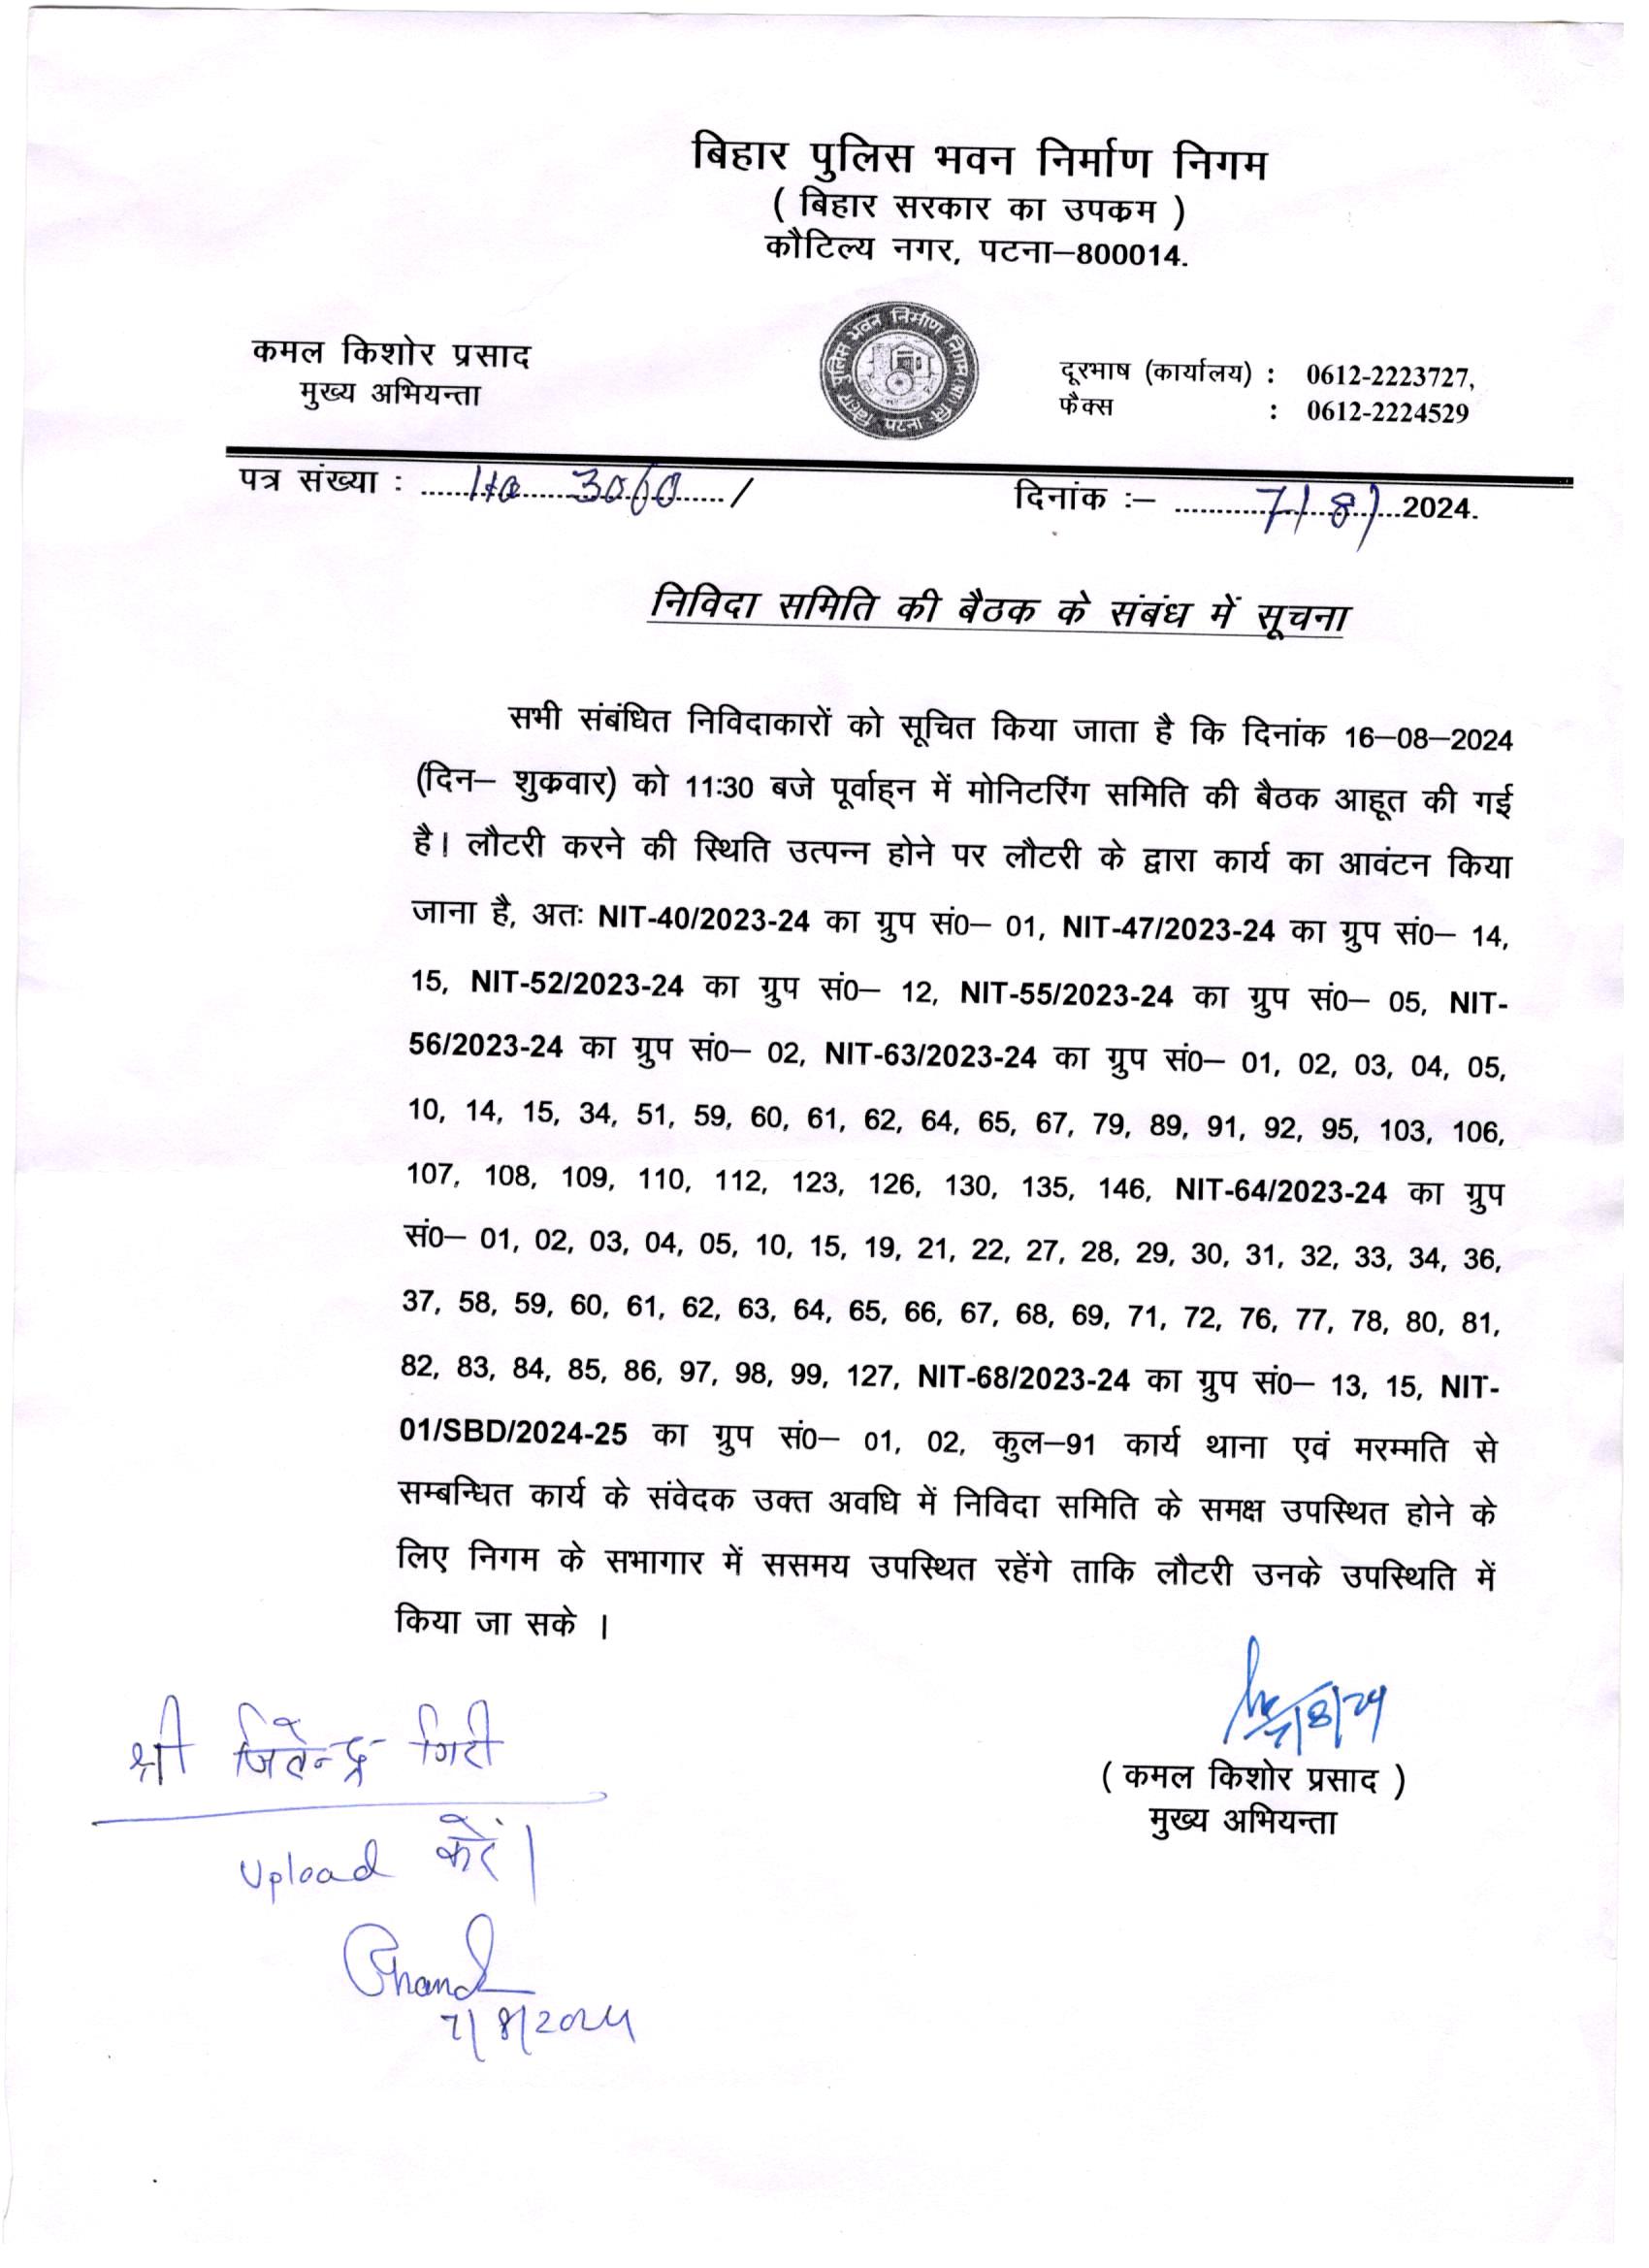 बिहार पुलिस भवन निर्माण निगम
( बिहार सरकार का उपक्रम )
कौटिल्य नगर, पटना–800014.
कमल किशोर प्रसाद
मुख्य अभियन्ता
बिहार पुलिस भवन निर्माण निगम (प्रा०) लि०
पटना
दूरभाष (कार्यालय) : 0612-2223727,
फैक्स : 0612-2224529
पत्र संख्या : ............ 3060 ....../
दिनांक :– ........7/8/....2024.
निविदा समिति की बैठक के संबंध में सूचना
सभी संबंधित निविदाकारों को सूचित किया जाता है कि दिनांक 16–08–2024
(दिन– शुक्रवार) को 11:30 बजे पूर्वाह्न में मोनिटरिंग समिति की बैठक आहूत की गई
है। लौटरी करने की स्थिति उत्पन्न होने पर लौटरी के द्वारा कार्य का आवंटन किया
जाना है, अतः NIT-40/2023-24 का ग्रुप सं0– 01, NIT-47/2023-24 का ग्रुप सं0– 14,
15, NIT-52/2023-24 का ग्रुप सं0– 12, NIT-55/2023-24 का ग्रुप सं0– 05, NIT-
56/2023-24 का ग्रुप सं0– 02, NIT-63/2023-24 का ग्रुप सं0– 01, 02, 03, 04, 05,
10, 14, 15, 34, 51, 59, 60, 61, 62, 64, 65, 67, 79, 89, 91, 92, 95, 103, 106,
107, 108, 109, 110, 112, 123, 126, 130, 135, 146, NIT-64/2023-24 का ग्रुप
सं0– 01, 02, 03, 04, 05, 10, 15, 19, 21, 22, 27, 28, 29, 30, 31, 32, 33, 34, 36,
37, 58, 59, 60, 61, 62, 63, 64, 65, 66, 67, 68, 69, 71, 72, 76, 77, 78, 80, 81,
82, 83, 84, 85, 86, 97, 98, 99, 127, NIT-68/2023-24 का ग्रुप सं0– 13, 15, NIT-
01/SBD/2024-25 का ग्रुप सं0– 01, 02, कुल–91 कार्य थाना एवं मरम्मति से
सम्बन्धित कार्य के संवेदक उक्त अवधि में निविदा समिति के समक्ष उपस्थित होने के
लिए निगम के सभागार में ससमय उपस्थित रहेंगे ताकि लौटरी उनके उपस्थिति में
किया जा सके ।
7/8/24
( कमल किशोर प्रसाद )
मुख्य अभियन्ता
श्री जितेन्द्र गिरी
Upload करें।
7/8/2024